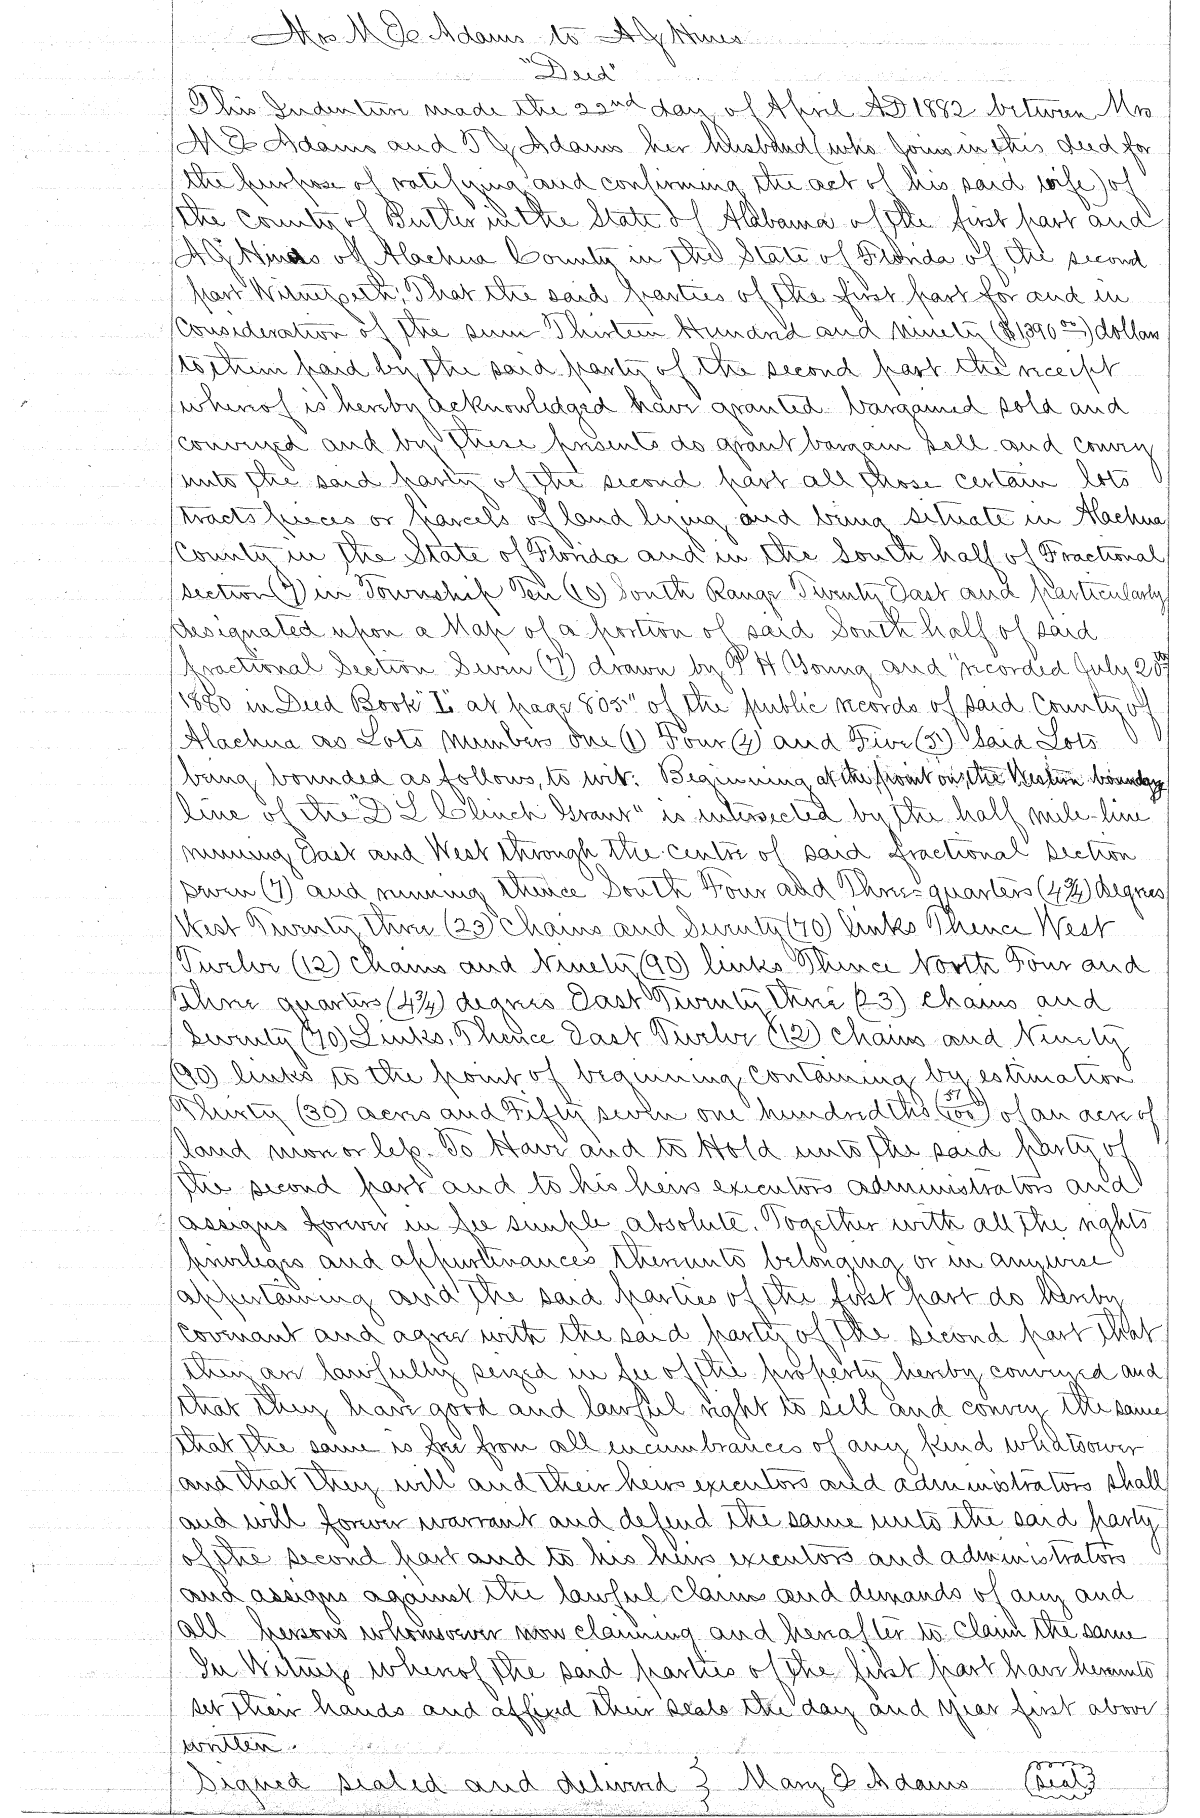 Mrs M E Adams to A G Hines
"Deed"
This Indenture made the 22nd day of April AD 1882 between Mrs
M E Adams and T J Adams her husband (who joins in this deed for
the purpose of ratifying and confirming the act of his said wife) of
the County of Butler in the State of Alabama of the first part and
A G Hines of Alachua County in the State of Florida of the second
part Witnesseth; That the said parties of the first part for and in
Consideration of the sum Thirteen Hundred and ninety ($1,390 00) dollars
to them paid by the said party of the second part the receipt
whereof is hereby acknowledged have granted bargained sold and
conveyed and by these presents do grant bargain sell and convey
unto the said party of the second part all those certain lots
tracts pieces or parcels of land lying and being situate in Alachua
County in the State of Florida and in the South half of Fractional
section (7) in Township Ten (10) South Range Twenty East and particularly
designated upon a Map of a portion of said South half of said
fractional Section Seven (7) drawn by P H Young and "recorded July 20th
1880 in Deed Book "L" at page 805" of the public records of said County of
Alachua as Lots numbers one (1) Four (4) and Five (5) Said Lots
being bounded as follows, to wit: Beginning at the point on the Western boundary
line of the "D L Clinch Grant" is intersected by the half mile-line
running East and West through the centre of said fractional section
seven (7) and running thence South Four and Three-quarters (4 3/4) degrees
West Twenty three (23) chains and Seventy (70) links Thence West
Twelve (12) chains and Ninety (90) links Thence North Four and
three quarters (4 3/4) degrees East Twenty three (23) chains and
Seventy (70) Links, Thence East Twelve (12) chains and Ninety
(90) links to the point of beginning containing by estimation
Thirty (30) acres and Fifty seven one hundredths (57/100) of an acre of
land more or less. To Have and to Hold unto the said party of
the second part and to his heirs executors administrators and
assigns forever in fee simple absolute. Together with all the rights
privileges and appurtenances thereunto belonging or in anywise
appertaining and the said parties of the first part do hereby
covenant and agree with the said party of the second part that
they are lawfully seized in fee of the property hereby conveyed and
that they have good and lawful right to sell and convey the same
that the same is free from all encumbrances of any kind whatsoever
and that they will and their heirs executors and administrators shall
and will forever warrant and defend the same unto the said party
of the second part and to his heirs executors and administrators
and assigns against the lawful claims and demands of any and
all persons whomsoever now claiming and hereafter to claim the same
In Witness whereof the said parties of the first part have hereunto
set their hands and affixed their seals the day and year first above
written.
Signed sealed and delivered } Mary E Adams (Seal)